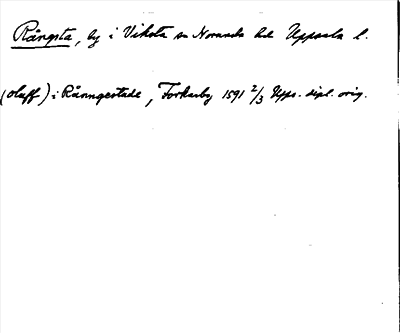 Rångsta, by i Viksta sn Norunda hd Uppsala l.
(Oluff) i Rånngestade, Forkarby 1591 2/3 Upps. dipl. orig.